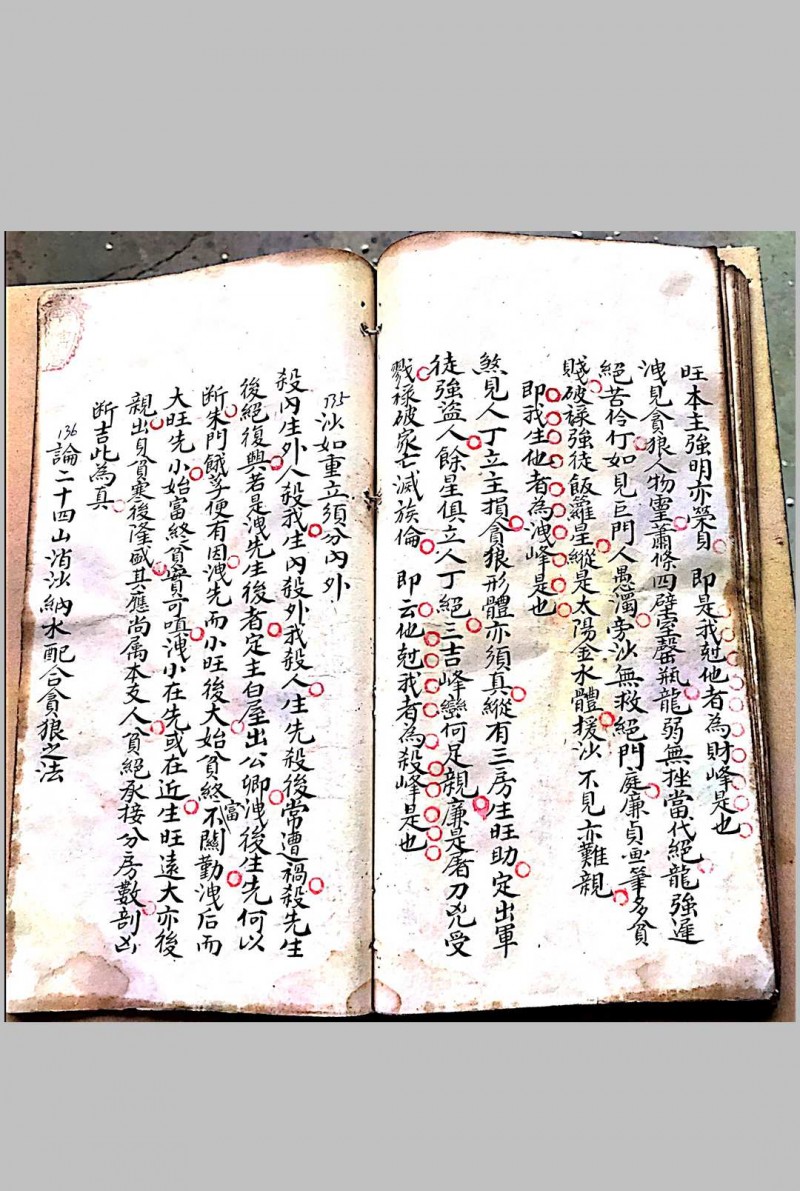 旺本主強明亦榮貝　即是我尅他者為財峰是也
洩見貪狼人物灵蕭條四壁室罄瓶龍弱無挫當代絕龍強遲
絕苦伶仃如見巨門人愚濁旁沙無救絕門庭廉貞画筆多貧
賤破祿強徒飯籮星縱是太陽金水體援沙不見亦難親
即我生他者為洩峰是也
煞見人丁立主損貪狼形體亦須真縱有三房生旺助定出軍
徒強盜人餘星俱立人丁絕三吉峰巒何足親廉是屠刀兇受
戮祿破家亡滅族倫　即云他尅我者為殺峰是也
135沙如重立須分內外
殺內生外人殺我生內殺外我殺人生先殺後常遭禍殺先生
後絕復興若是洩先生後者定主白屋出公卿洩後生先何以
断朱門餓莩便有因洩先而小旺後大始貧終富不關勤洩后而
大旺先小始富終貧實可嗔洩小在先或在近生旺遠大亦後
親出貝貧寒後隆盛其應尚属本支人貧絕承接分房數剖凶
断吉此為真
136論二十四山消沙納水配合貪狼之法